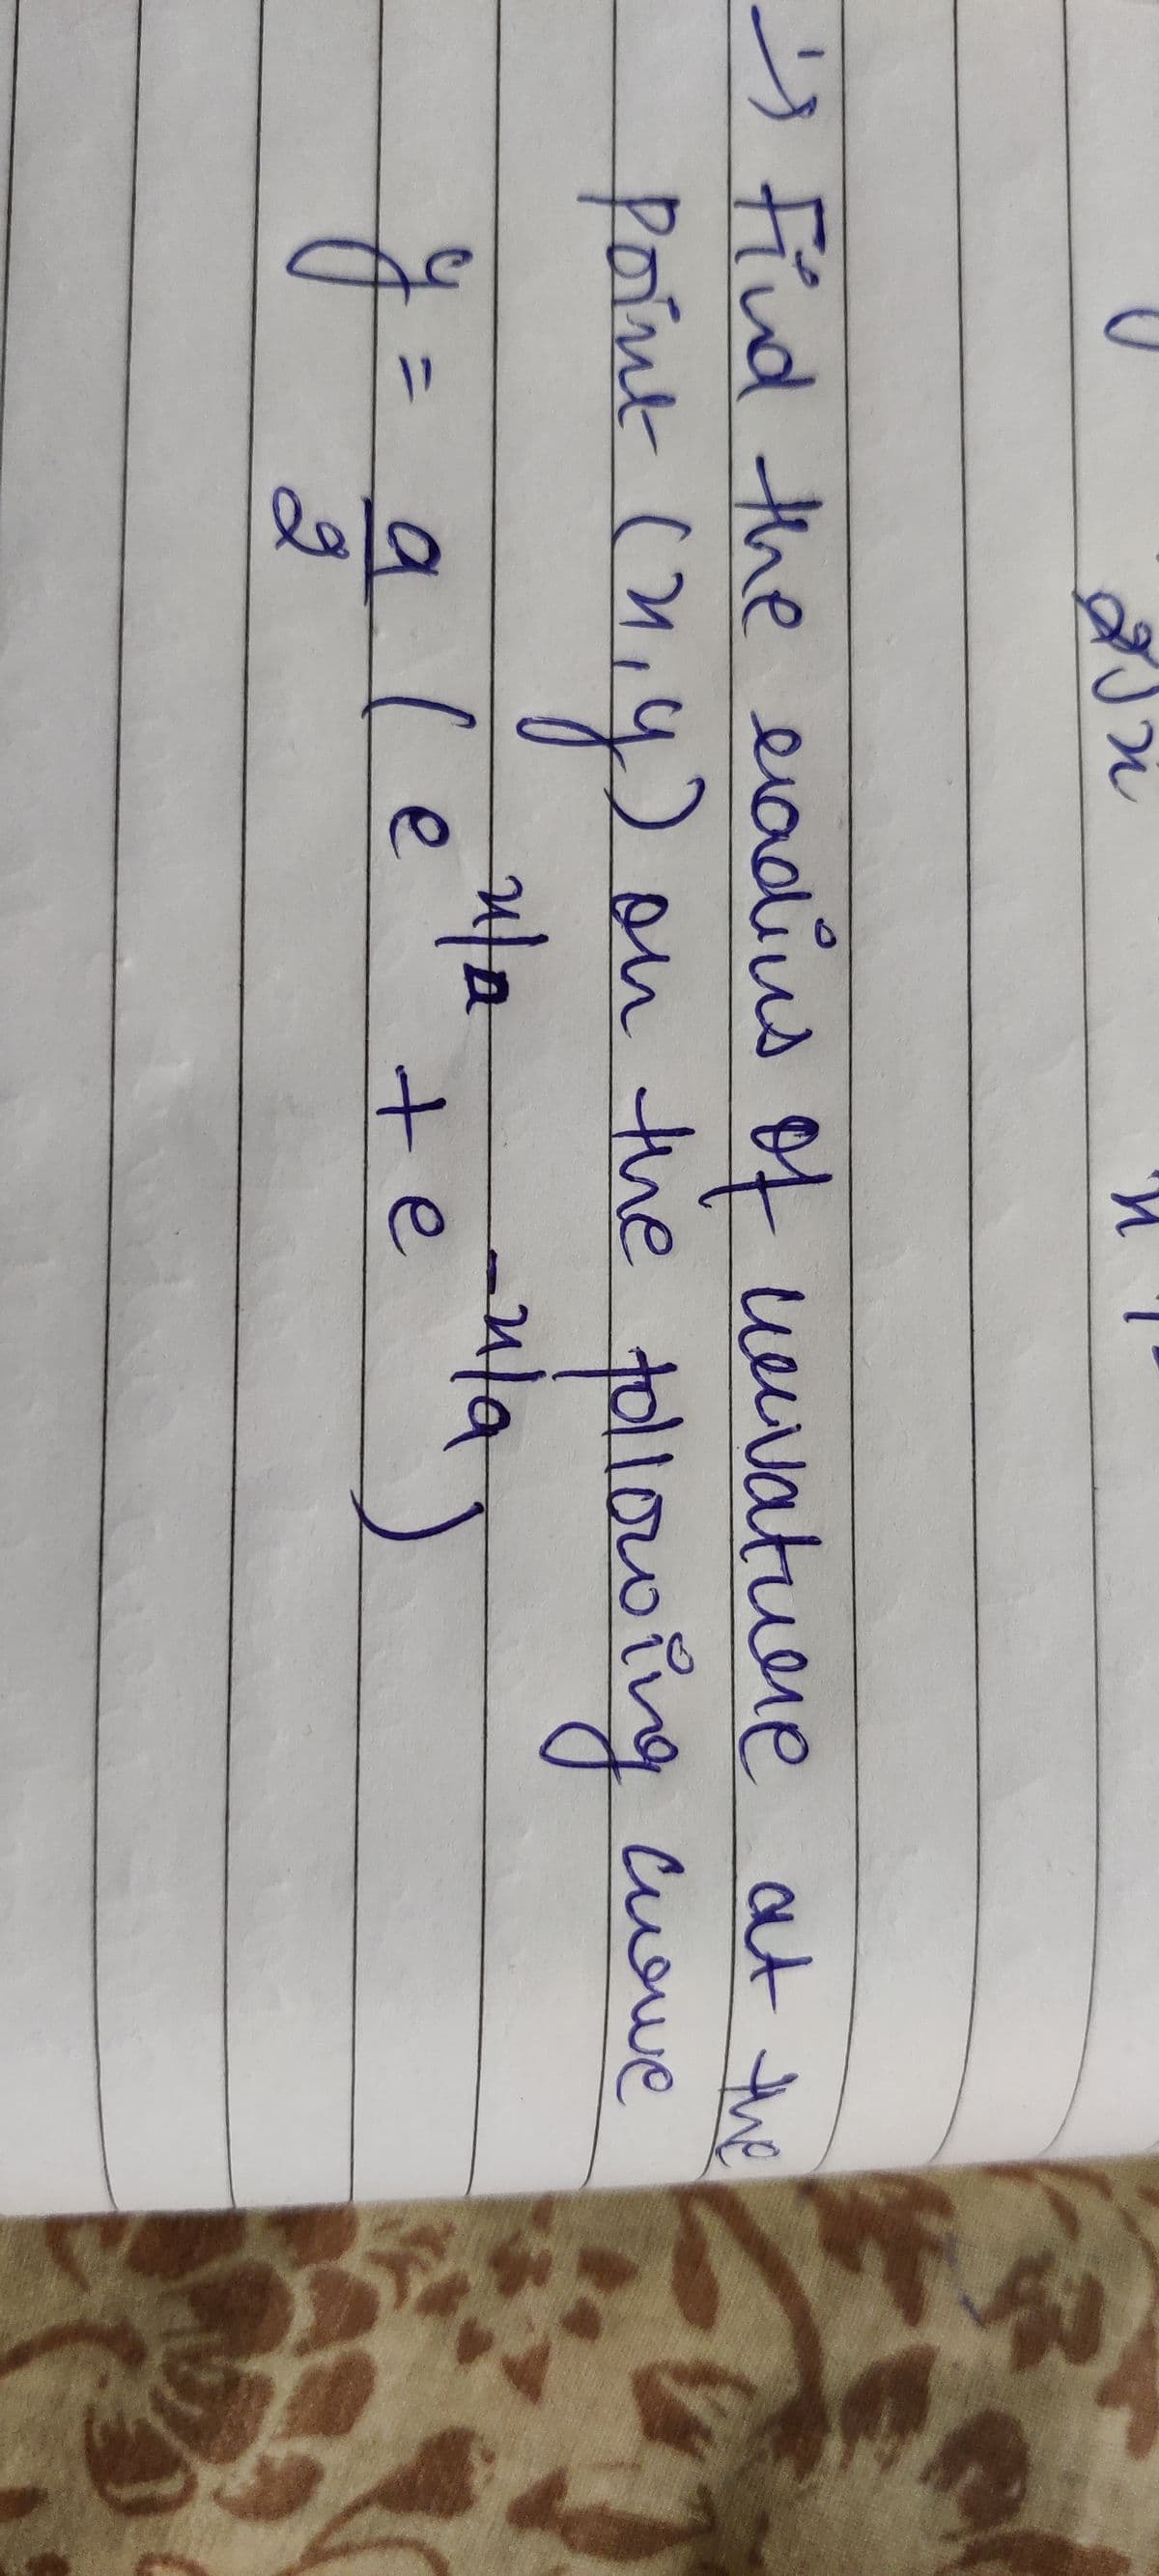 → Find the radius of curvature at the
point (x,y) on the following curve
y = a/2 ( e^x/a + e^-x/a )